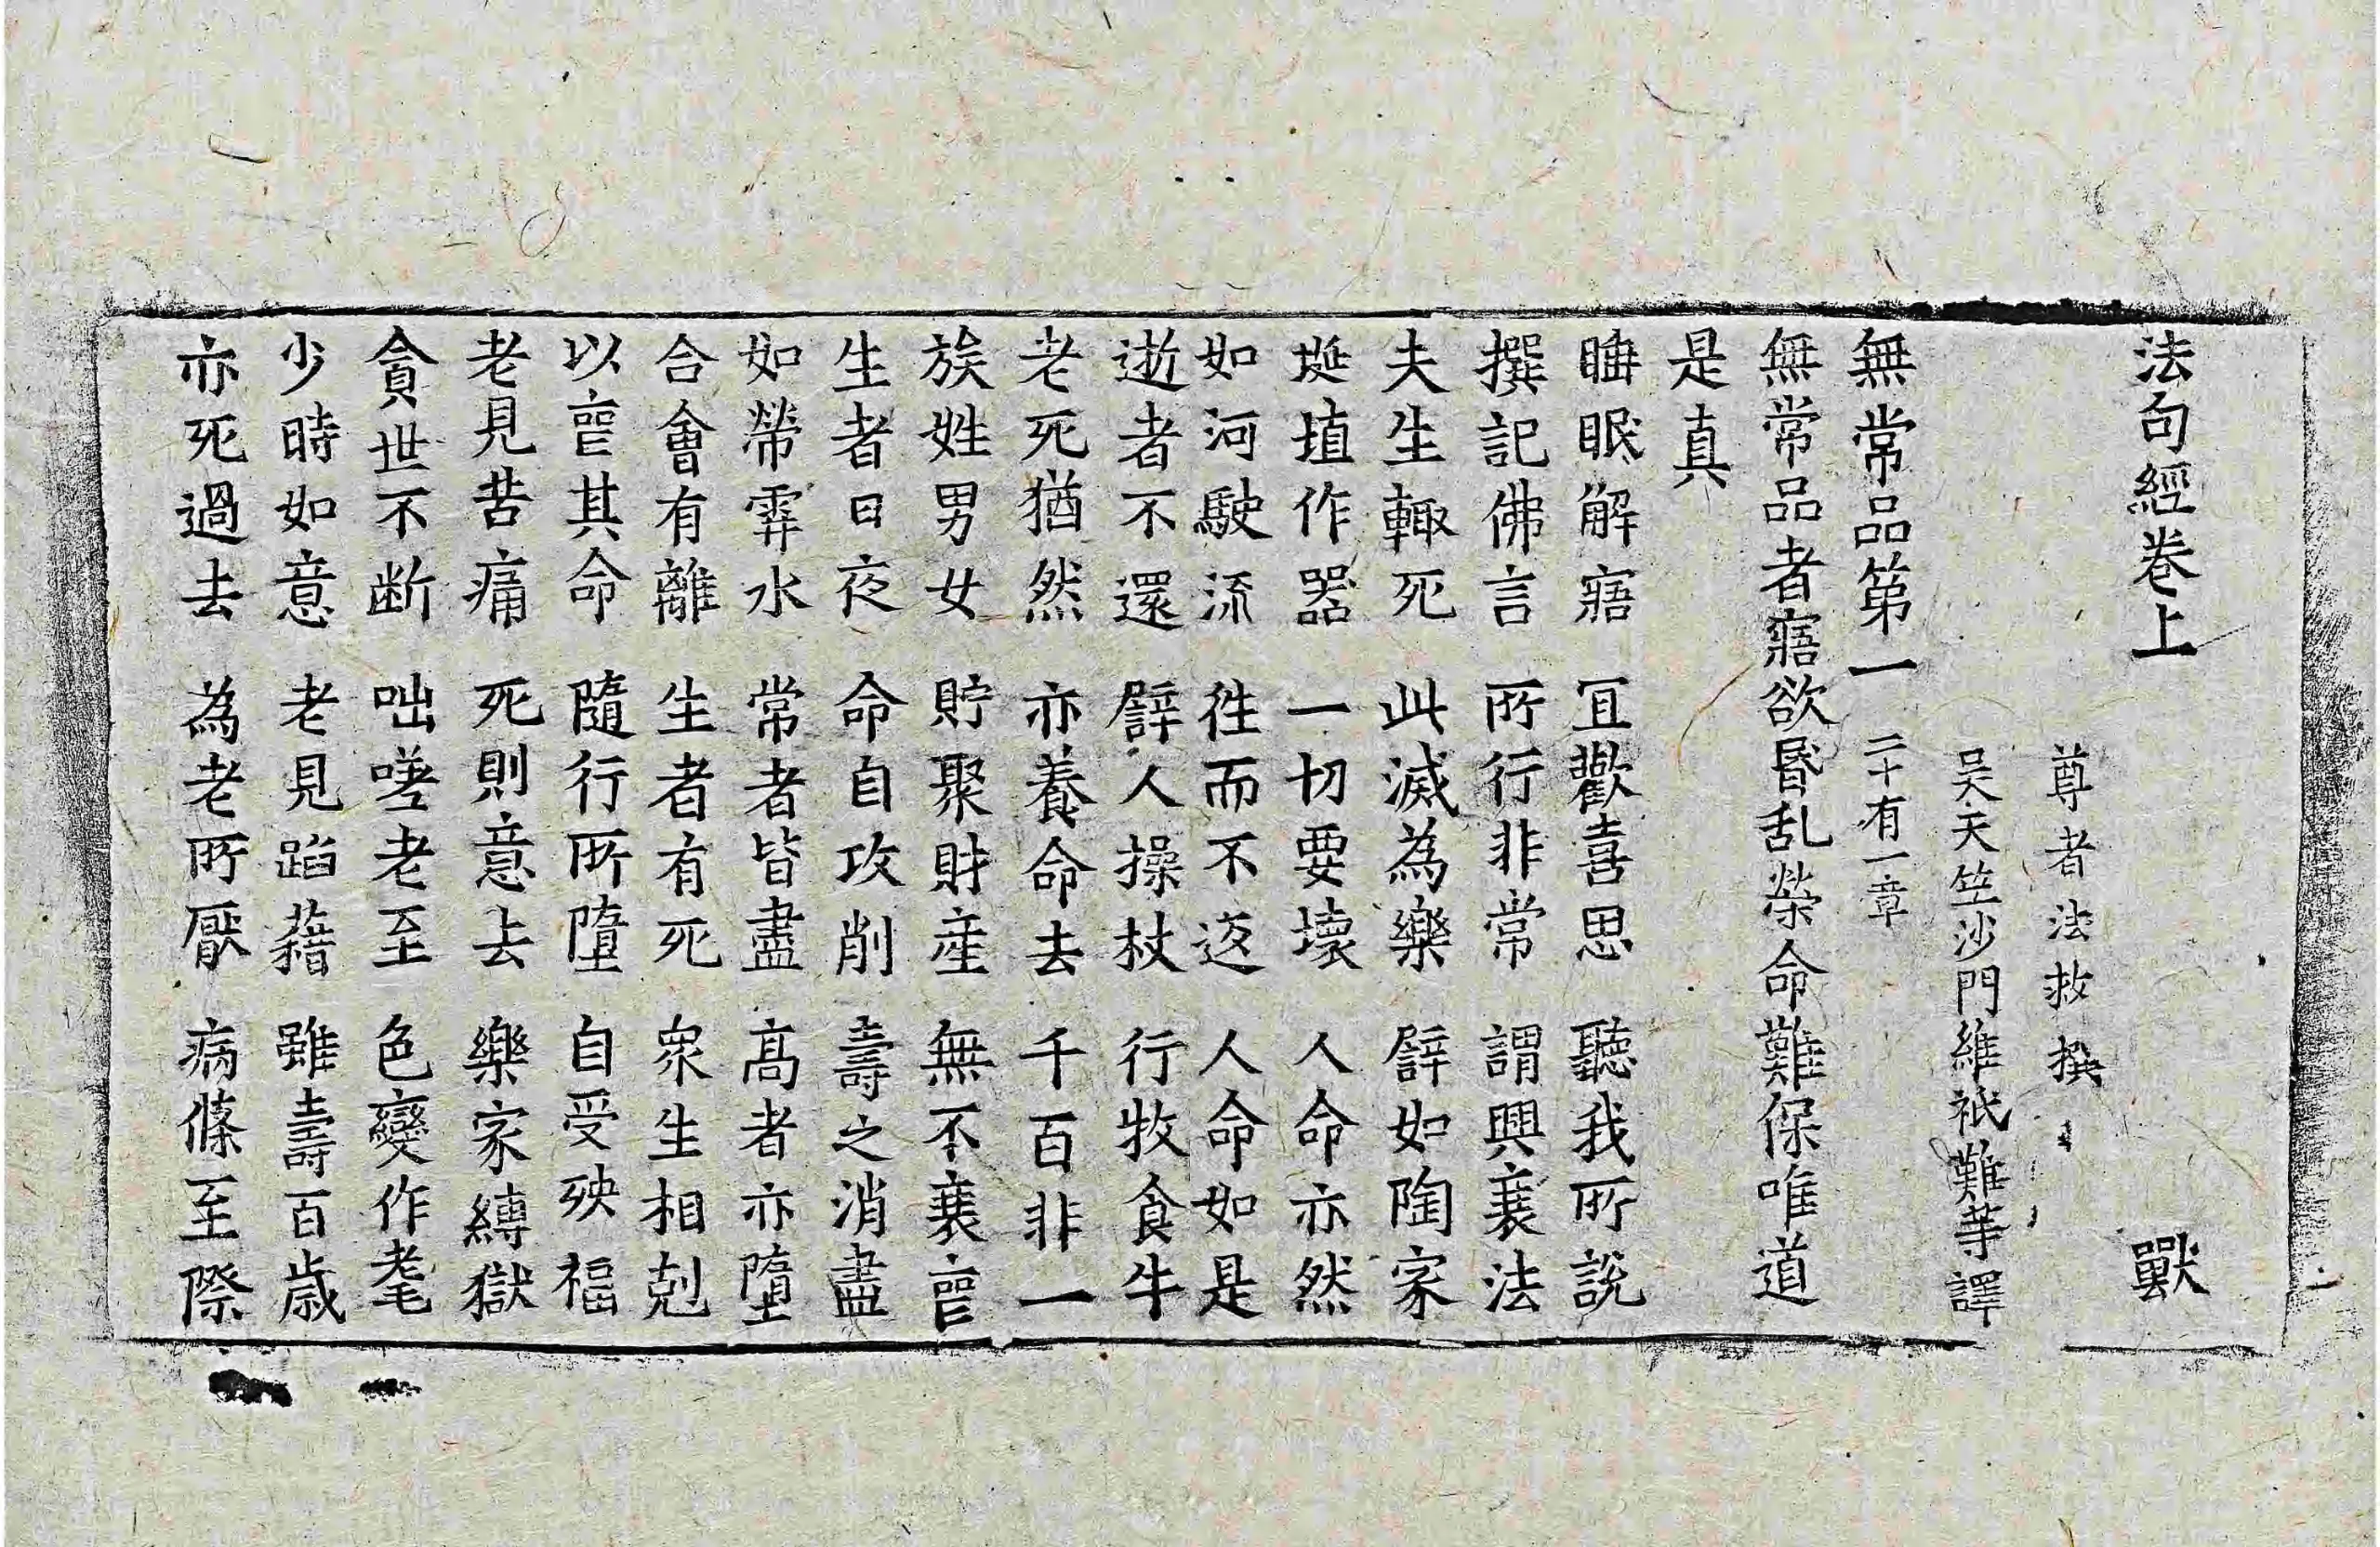 法句經卷上 獸
尊者法救撰
吳天竺沙門維祇難等譯
無常品第一 二十有一章
無常品者寤欲昬乱榮命難保唯道
是真
睡眠解寤 冝歡喜思 聽我所說
撰記佛言 所行非常 謂興衰法
夫生輙死 此滅為樂 譬如陶家
埏埴作器 一切要壞 人命亦然
如河駛流 徃而不返 人命如是
逝者不還 譬人操杖 行牧食牛
老死猶然 亦養命去 千百非一
族姓男女 貯聚財產 無不衰喪
生者日夜 命自攻削 壽之消盡
如㷀霏水 常者皆盡 高者亦墮
合會有離 生者有死 衆生相剋
以喪其命 隨行所墮 自受殃福
老見苦痛 死則意去 樂家縛獄
貪世不断 咄嗟老至 色變作耄
少時如意 老見蹈藉 雖壽百歲
亦死過去 為老所厭 病條至際